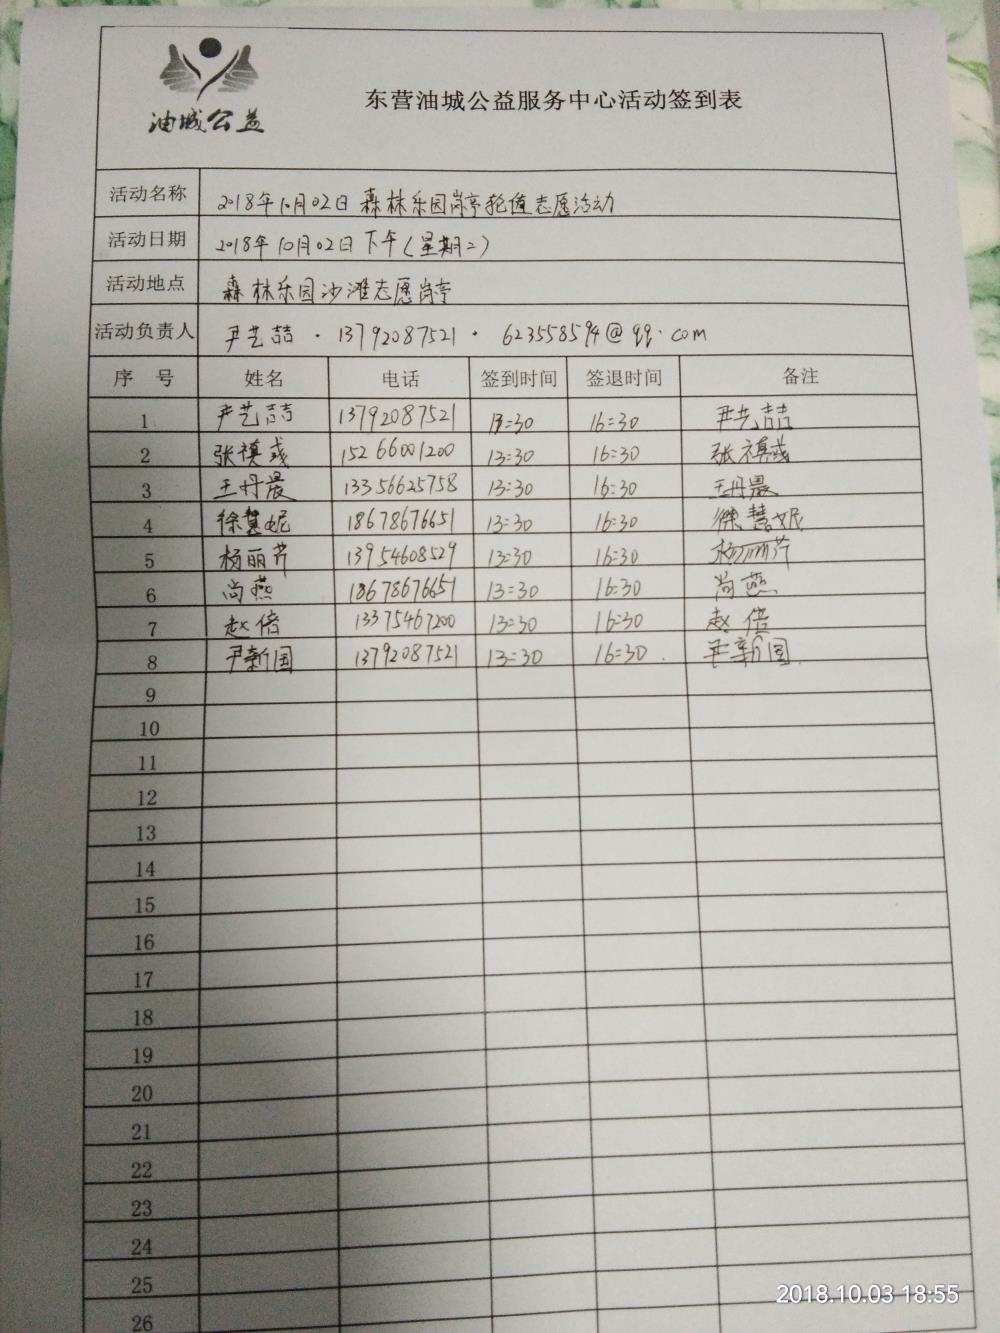 油城公益
东营油城公益服务中心活动签到表
活动名称 2018年10月02日 森林乐园岗亭轮值志愿活动
活动日期 2018年10月02日下午(星期二)
活动地点 森林乐园沙滩志愿岗亭
活动负责人 尹艺喆 · 13792087521 · 623558594@qq.com
序 号 姓名 电话 签到时间 签退时间 备注
1 尹艺喆 13792087521 13:30 16:30 尹艺喆
2 张祺彧 15266001200 13:30 16:30 张祺彧
3 王丹晨 13356625758 13:30 16:30 王丹晨
4 徐慧妮 18678676651 13:30 16:30 徐慧妮
5 杨丽芹 13954608529 13:30 16:30 杨丽芹
6 尚燕 18678676651 13:30 16:30 尚燕
7 赵倍 13375467200 13:30 16:30 赵倍
8 尹新国 13792087521 13:30 16:30 尹新国
9
10
11
12
13
14
15
16
17
18
19
20
21
22
23
24
25
26
2018.10.03 18:55